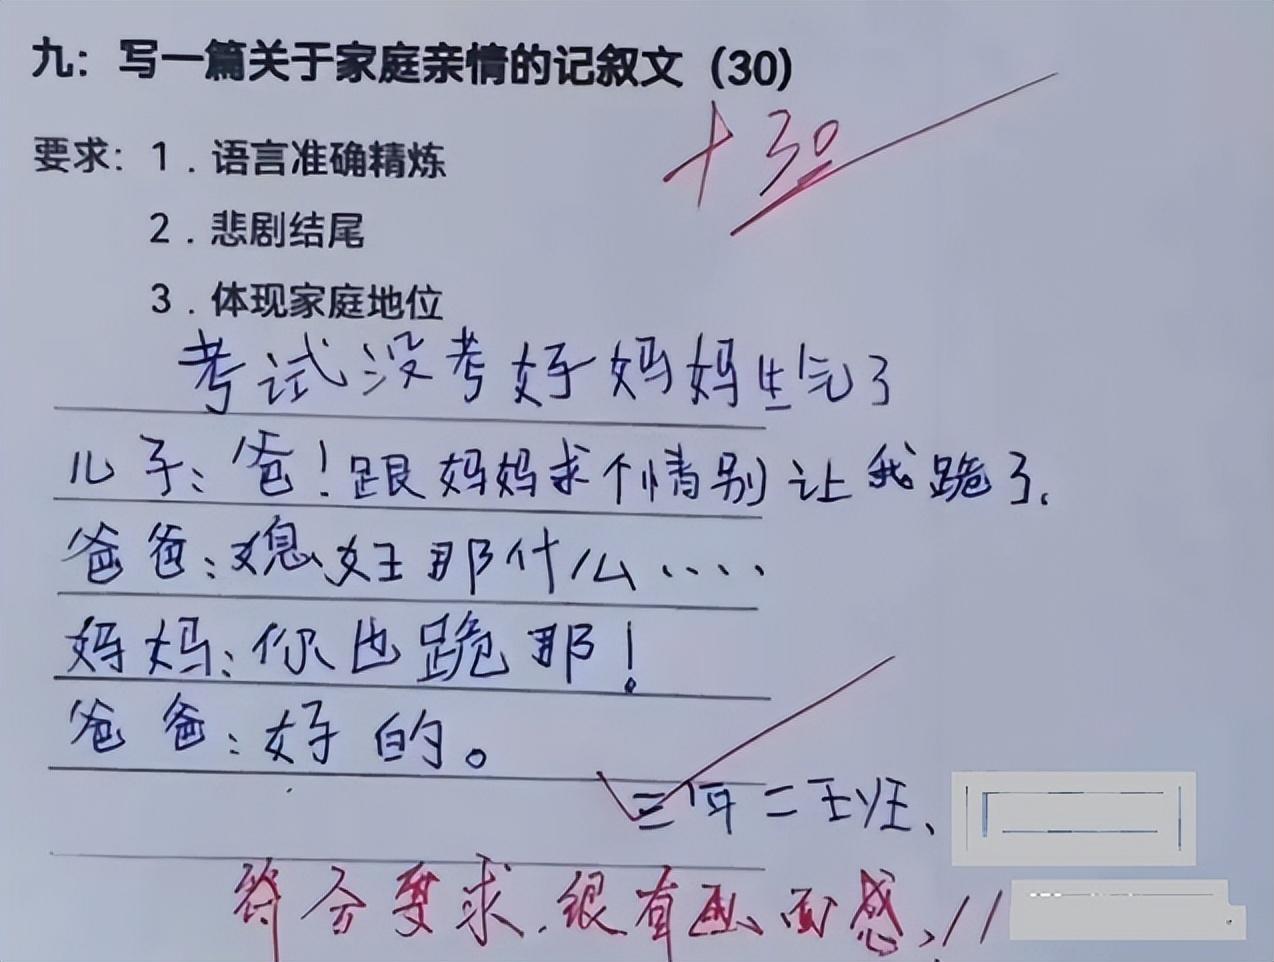 九：写一篇关于家庭亲情的记叙文（30）
+30
要求：1．语言准确精炼
2．悲剧结尾
3．体现家庭地位
考试没考好妈妈生气了
儿子：爸！跟妈妈求个情别让我跪了.
爸爸：媳妇那什么....
妈妈：你也跪那！
爸爸：好的。
三年二班、
符合要求.很有画面感、!!